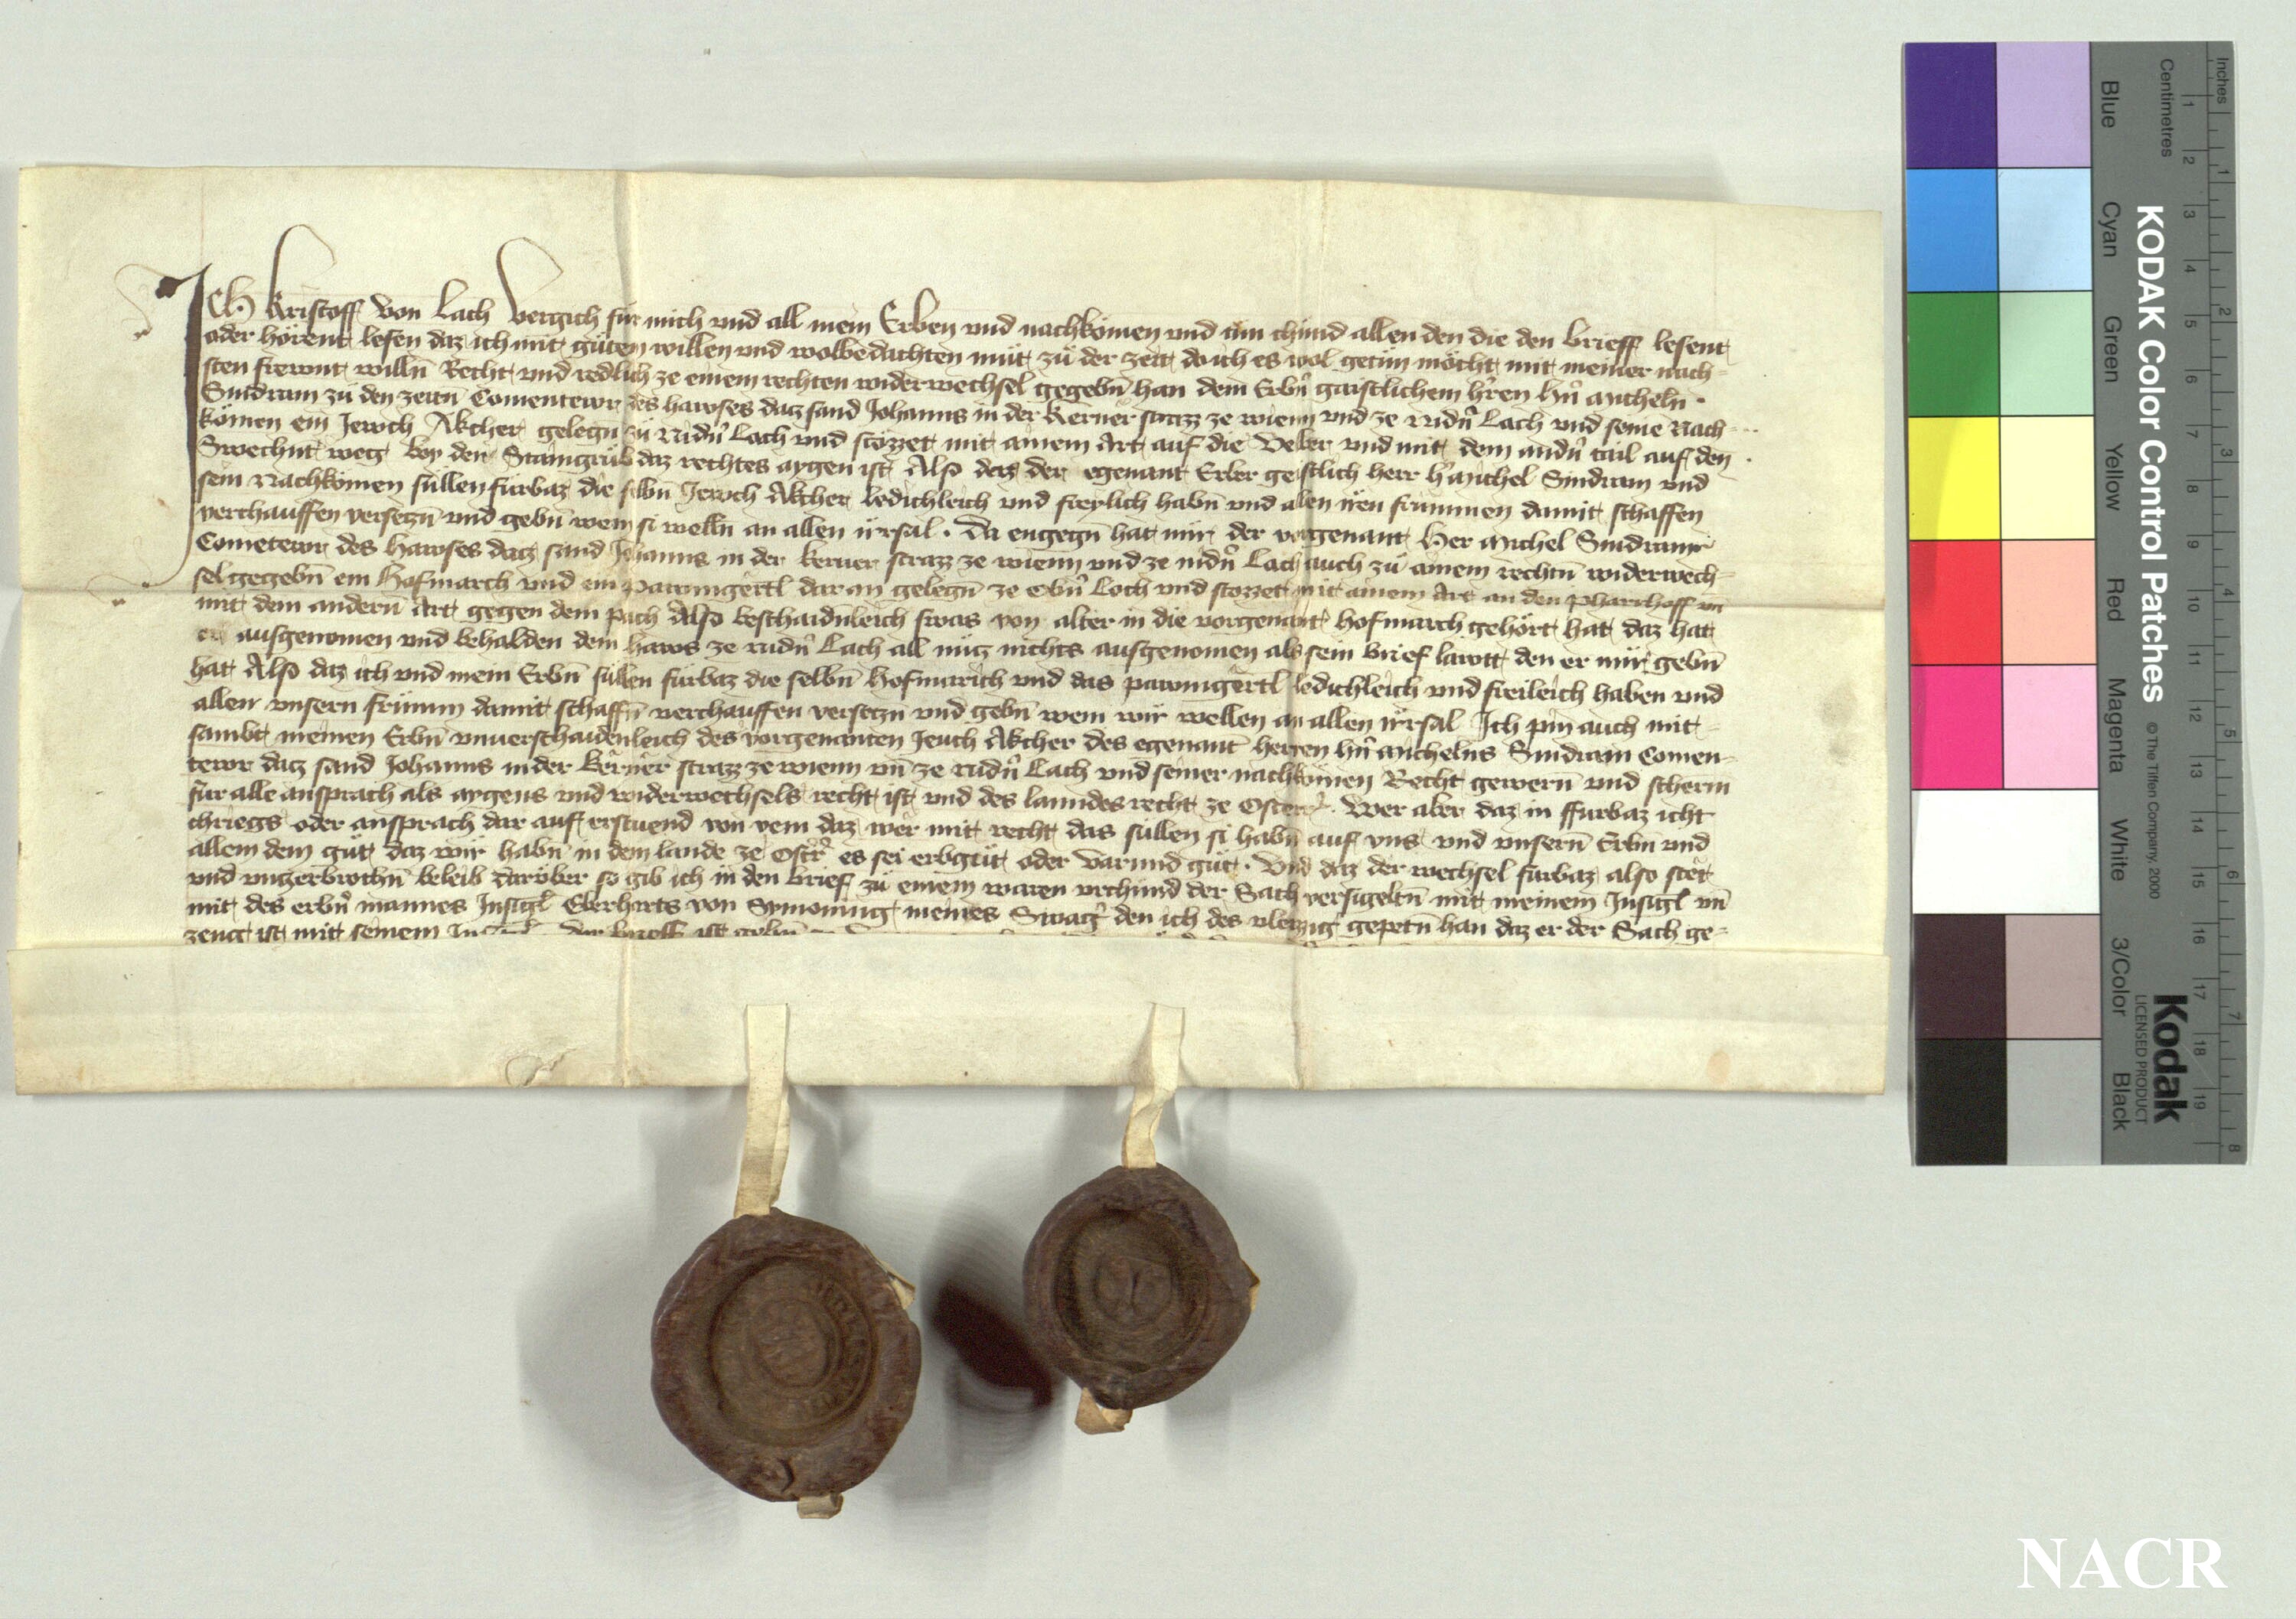 Ich Kristoff von Lach vergich für mich vnd all mein Erben vnd nachkömen vnd tün chünd allen den die den brieff lesent
oder hörent lesen daz ich mit gütem willen vnd wolbedachten müt zü der zeit do ich es wol getün möcht mit meiner nach-
sten frewnt willn̄ Recht vnd redlich ze einem rechten widerwechsel gegebn̄ han dem Erbn̄ gaistlichem h'ren hn̄ Micheln
Sindram zü den zeitn̄ Comentewr des hawses datz sand Johanns in der Kerner strazz ze wienn vnd ze Nidn̄ Lach vnd seine Nach-
kömen ein Jewch Akcher gelegn̄ zü Nidn̄ Lach vnd stözzet mit ainem Art auf die vnd mit dem andn̄ tail auf den
weg bey den Staingrüb daz rechtes aygen ist Also daz der egenant Erber geistlich herr h' Michel Sindram vnd
sein Nachkömen süllen fürbaz die selbn̄ Jewch Akcher ledichleich vnd freylich habn̄ vnd allen iren frümmen damit schaffen
verchauffen versetzn̄ vnd gebn̄ wem si welln an allen irrsal. Da engegn̄ hat mir der vorgenant Her Michel Sindram
Cometewr des Hawses datz sand Johanns in der kerner strazz ze wienn vnd ze nidn̄ Lach auch zü ainem rechtn̄ widerwech-
sel gegebn̄ ein Hofmarch vnd ein pawmgertl dar an gelegn̄ ze Obn̄ Loch vnd stozzet mit ainem Art an den pharrhoff vn̄
mit dem andern̄ Art gegen dem pach Also beschaidnleich swas von alter in die vorgenant hofmarch gehört hat daz hat
er ausgenomen vnd behalden dem haws ze nidn̄ Lach all nütz nichts ausgenomen als sein brief lawtt den er mir gebn̄
hat Also daz ich vnd mein Erbn̄ süllen fürbaz die selbn̄ Hofmarich vnd das pawmgertl ledichleich vnd freileich haben vnd
allen vnsern frümm damit schaffn̄ verchauffen versetzn̄ vnd gebn̄ wem wir wellen an allen irrsal Ich pin auch mit-
sambt meinen Erbn̄ vnuerschaidenleich des vorgenanten Jeuch Akcher des egenant herren hn̄ Michelns Sindram Comen-
tewr datz sand Johanns in der kerner strazz ze wienn vn̄ ze nidn̄ Lach vnd seiner nachkömen Recht gewern̄ vnd scherm
für alle ansprach als aygens vnd widerwechsels recht ist vnd des lanndes recht ze Osterr'. Wer aber daz in ffurbaz icht
chriegs oder ansprach dar auf erstuend von wem daz wer mit recht das süllen si habn̄ auf vns vnd vnsern̄ Erbn̄ vnd
allem dem güt daz wir habn̄ in dem lande ze Ost'r' es sei erbgüt oder varund güt. Vnd daz der wechsel fürbaz also stet
vnd vnzerbrochn̄ beleib darüber so gib ich in den brief zü einem waren vrchünd der Sach versigeltn̄ mit meinem Insigl vn̄
mit des erbn̄ mannes Insigl Eberharts von Symoning meines Swag' den ich des gepetn̄ han daz er der Sach ge-
zeug ist mit seinem
KODAK Color Control Patches
© The Tiffen Company, 2000
Kodak
LICENSED PRODUCT
Inches
Centimetres
Blue
Cyan
Green
Yellow
Red
Magenta
White
3/Color
Black
1 2 3 4 5 6 7 8 9 10 11 12 13 14 15 16 17 18 19
1 2 3 4 5 6 7 8
NACR